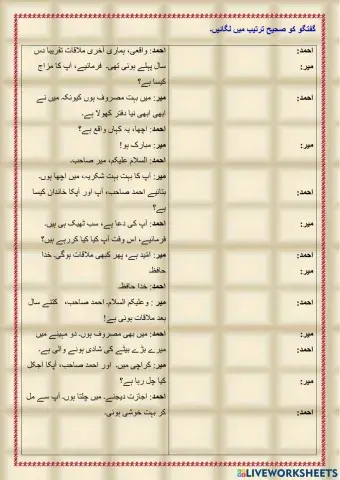 گفتگو کو صحیح ترتیب میں لگائیں۔
احمد:
میر:
احمد:
میر:
احمد:
میر:
احمد:
میر:
احمد:
میر:
احمد:
میر:
احمد:
احمد: واقعی، ہماری آخری ملاقات تقریبا دس
سال پہلے ہوئی تھی۔ فرمائیے، آپ کا مزاج
کیسا ہے؟
میر: میں بہت مصروف ہوں کیونکہ میں نے
ابھی ابھی نیا دفتر کھولا ہے۔
احمد: اچھا، یہ کہاں واقع ہے؟
میر: مبارک ہو!
احمد: السلام علیکم، میر صاحب۔
میر: آپ کا بہت بہت شکریہ، میں اچھا ہوں۔
بتائیے احمد صاحب، آپ اور آپکا خاندان کیسا
ہے؟
احمد: آپ کی دعا ہے، سب ٹھیک ہی ہیں۔
فرمائیے، اس وقت آپ کیا کیا کررہے ہیں؟
میر: امّید ہے، پھر کبھی ملاقات ہوگی۔ خدا
حافظ۔
احمد: خدا حافظ۔
میر : وعلیکم السلام۔ احمد صاحب، کتنے سال
بعد ملاقات ہوئی ہے!
احمد: میں بھی مصروف ہوں۔ دو مہینے میں
میرے بڑے بیٹے کی شادی ہونے والی ہے۔
میر: کراچی میں۔ اور احمد صاحب، آپکا آجکل
کیا چل رہا ہے؟
احمد: اجازت دیجئے۔ میں چلتا ہوں۔ آپ سے مل
کر بہت خوشی ہوئی۔
LIVEWORKSHEETS